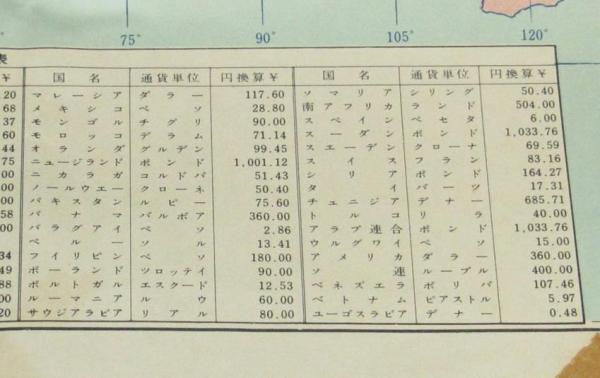 75° 90° 105° 120°
表
¥ 国名 通貨単位 円換算¥ 国名 通貨単位 円換算¥
.20 マレーシア ダラー 117.60 ソマリア シリング 50.40
68 メキシコ ペソ 28.80 南アフリカ ランド 504.00
37 モンゴル チグリ 90.00 スペイン ペセタ 6.00
60 モロッコ デラム 71.14 スーダン ポンド 1,033.76
44 オランダ グルデン 99.45 スエーデン クローナ 69.59
75 ニュージランド ポンド 1,001.12 スイス フラン 83.16
00 ニカラガ コルドバ 51.43 シリア ポンド 164.27
00 ノールウエー クローネ 50.40 タイ バーツ 17.31
00 パキスタン ルピー 75.60 チュニジア デナー 685.71
58 パナマ バルボア 360.00 トルコ リラ 40.00
00 パラグアイ ペソ 2.86 アラブ連合 ポンド 1,033.76
ペルー ソル 13.41 ウルグワイ ペソ 15.00
34 フイリピン ペソ 180.00 アメリカ ダラー 360.00
49 ポーランド ツロッテイ 90.00 ソ連 ルーブル 400.00
88 ポルトガル エスクード 12.53 ベネズエラ ボリバ 107.46
00 ルーマニア ルウ 60.00 ベトナム ピアストル 5.97
20 サウジアラビア リアル 80.00 ユーゴスラビア デナー 0.48